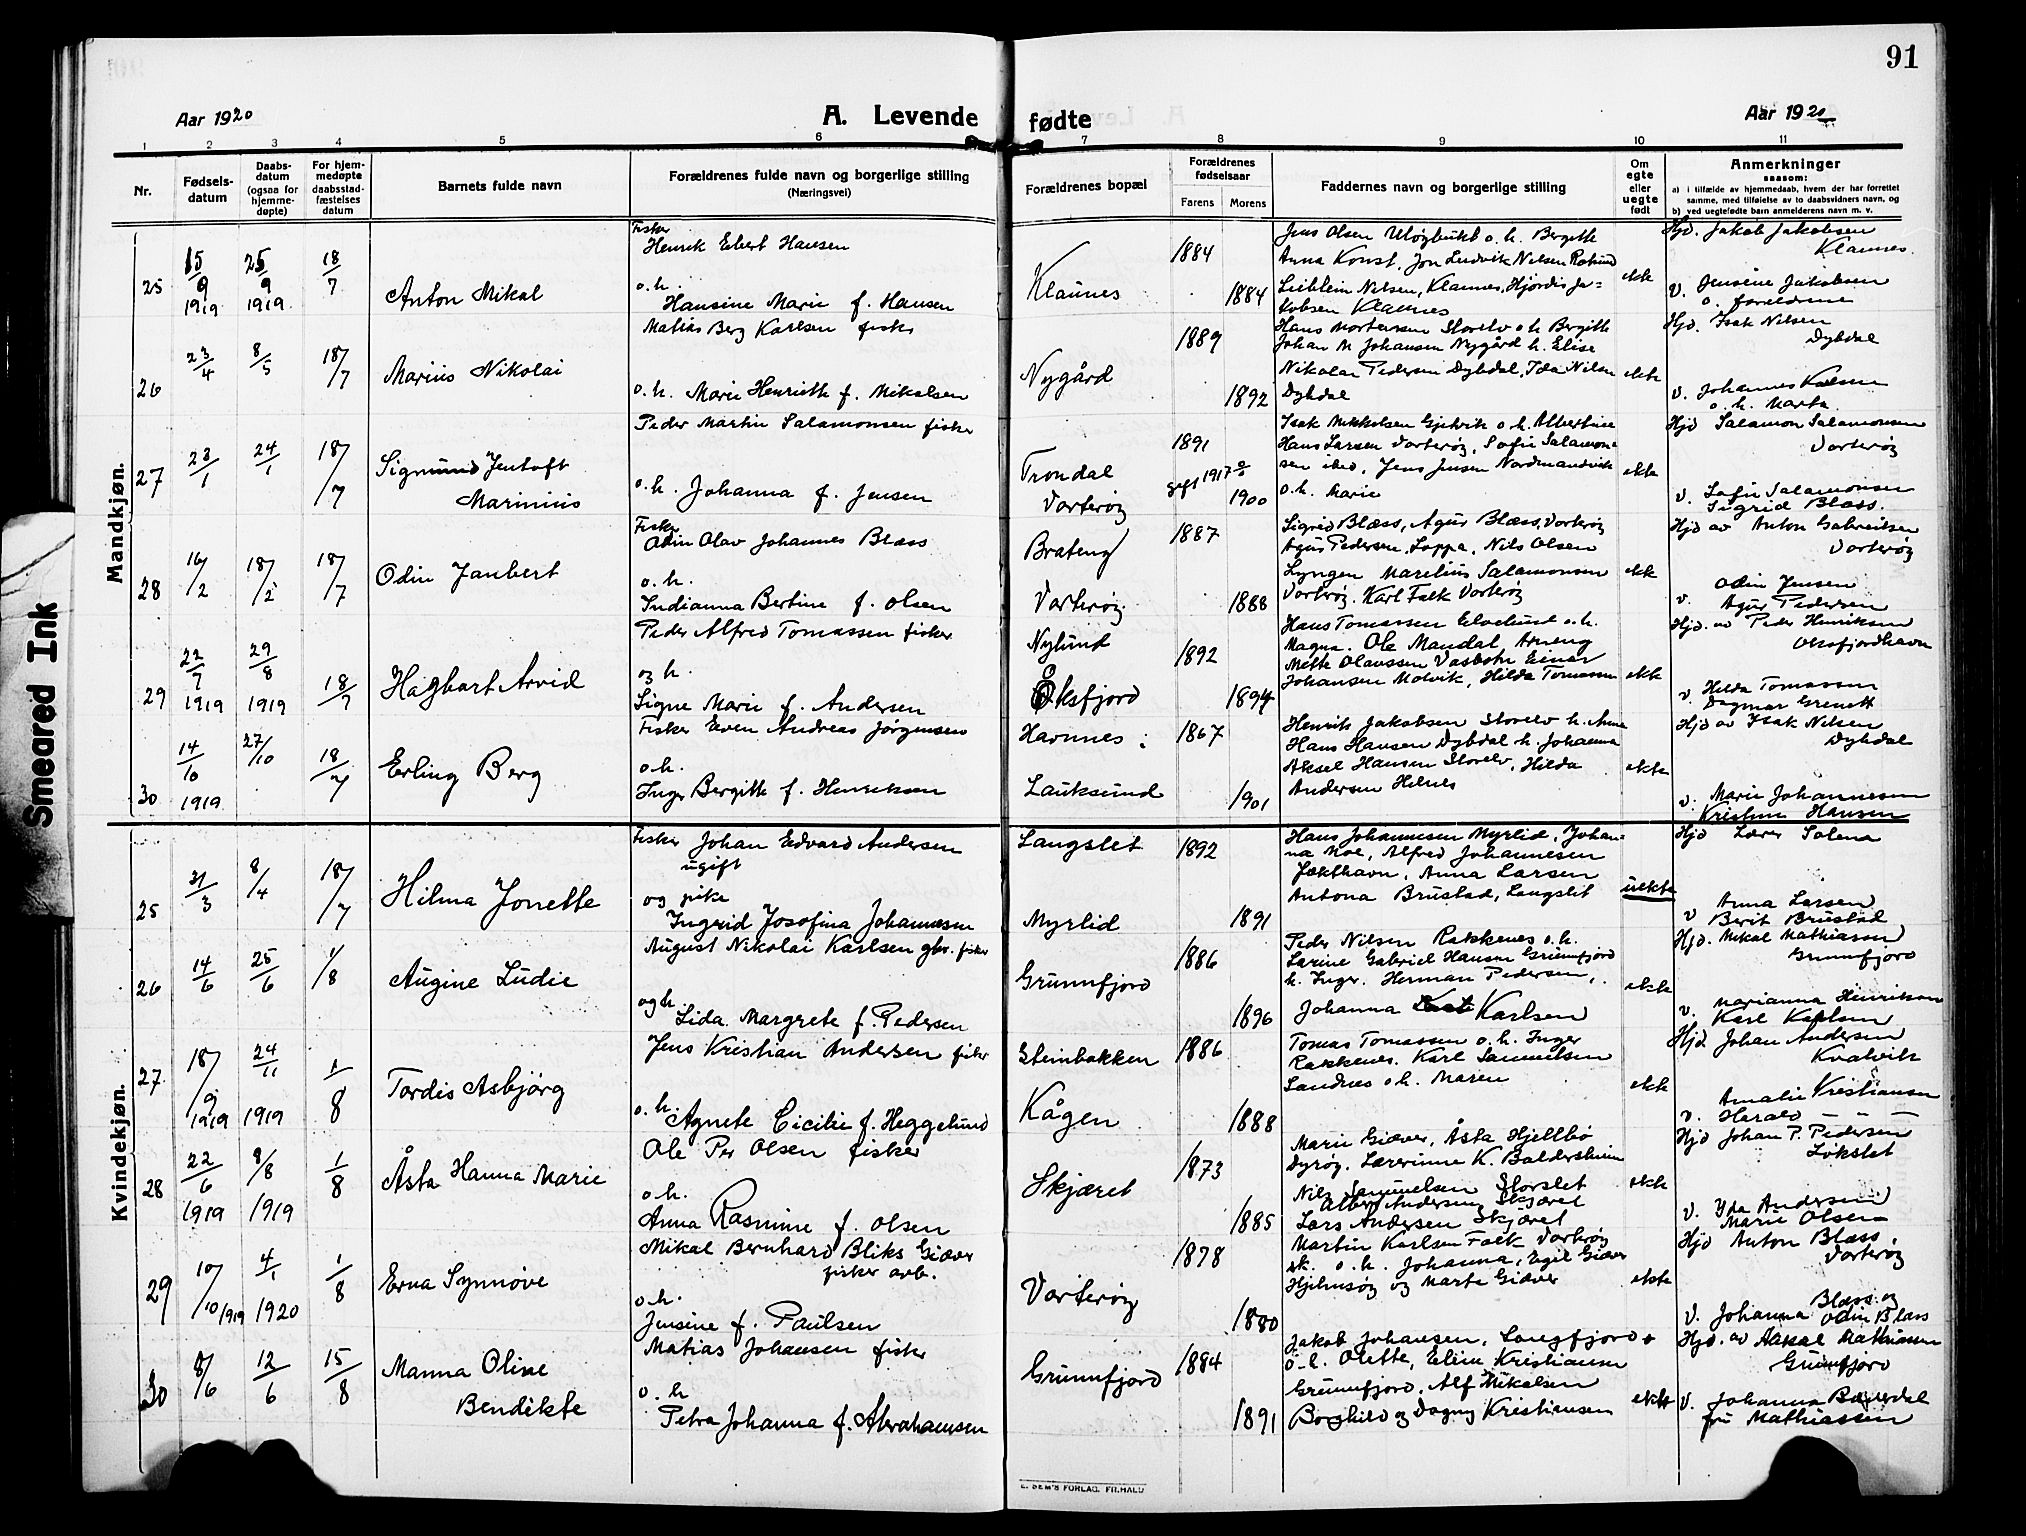 91
Aar 1920
A. Levende fødte
Aar 1920
1 2 3 4 5 6 7 8 9 10 11
Nr.
Fødsels-
datum
Daabs-
datum
(ogsaa for
hjemme-
døpte)
For hjem-
medøpte
daabsstad-
fæstelses
datum
Barnets fulde navn
Forældrenes fulde navn og borgerlige stilling
(Næringsvei)
Forældrenes bopæl
Forældrenes
fødselsaar
Farens Morens
Faddernes navn og borgerlige stilling
Om
egte
eller
uegte
født
Anmerkninger
saasom:
a) i tilfælde av hjemmedaab, hvem der har forrettet
samme, med tilføielse av to daabsvidners navn, og
b) ved uegtefødte barn anmelderens navn m. v.
Mandkjøn.
25
15/9 1919
25/9 1919
18/7
Anton Mikal
Fisker
Henrik Ebert Hansen
o.h.
Hansine Marie f. Hansen
Klaunes
1884
1884
Jens Olsen Uløgbukt o.h. Bergitte
Anna Konst, Jon Ludvik Nilsen
Nilsen, Klaunes, Hjördis Ja-
kobsen Klaunes
ekte
Hjd. Jakob Jakobsen
Klaunes.
v. Jensine Jakobsen
o. foreldrene
26
23/4
8/5
18/7
Marius Nikolai
Matias Berg Karlsen fisker
o.h. Marie Henriette f. Mikalsen
Nygård
1889
1892
Hans Mortensen Storelv o.h. Bergitte
Johan M Johansen Nygård h. Elise
Nikolai Pedersen Dybdal, Ida Nilsen
Dybdal
ekte
Hjd. Isak Nilsen
Dybdal
v. Johannes Karlsen
o. h. Marta
27
23/1
24/1
18/7
Sigmund Jentoft
Marinius
Peder Martin Salamonsen fisker
o.h. Johanna f. Jensen
Trondal
Vorterøy
1891
gift 1917
1900
Isak Mikkelsen Gjelvik o.h. Albertine
Hans Larsen Vorterøy, Sofie Salamon-
sen ibid, Jens Jensen Nordmandvik
o.h. Marie
ekte
Hjd Salamon Salamonsen
Vorterøy
v. Sofie Salamonsen
Sigrid Blæss.
28
16/2
18/2
18/7
Odin Janbert
Fisker
Odin Olav Johannes Blæss
o.h.
Indianna Bertine f. Olsen
Brateng
Vorterøy
1887
1888
Sigrid Blæss, Agur Blæss, Vorterøy
Agur Pedersen, Loppa, Nils Olsen
Lyngen Marelius Salamonsen
Vorterøy. Karl Falk Vorterøy
ekte
Hjd av Anton Gabrielsen
Vorterøy
v. Odin Jensen
Agur Pedersen
29
22/7 1919
29/8 1919
18/7
Hagbart Arvid
Peder Alfred Tomassen fisker
og h.
Signe Marie f. Andersen
Nylund
Oksfjord
1892
1894
Hans Tomassen o.h.
Magna. Ole Mandal
Mette Olaussen Einar
Johansen Molvik, Hilda Tomassen
ekte
Hjd. av Peder Henriksen
Oksfjordhavn
v. Hilda Tomassen
Dagmar
30
14/10 1919
27/10
18/7
Erling Berg
Fisker Even Andreas Jørgensen
o.h.
Inger Bergitte f. Henriksen
Havnnes
Lauksund
1867
1901
Henrik Jakobsen Storelv h. Anna
Hans Hansen Dybdal h. Johanna
Aksel Hansen Storelv, Hilda
Andersen
ekte
Hjd av Isak Nilsen
Dybdal
v. Marie Johannesen
Kristine Hansen
Kvindekjøn.
25
31/3
8/4
18/7
Hilma Jonette
Fisker Johan Edvard Andersen
ugift
og pike
Ingrid Josofina Johannesen
Langslet
Myrlid
1892
1891
Hans Johannesen Myrlid, Johan-
na Moe, Alfred Johannesen
Anna Larsen
Antona Brustad, Langslet
uekte
Hjd Lærer Solena
v Anna Larsen
Berit Brustad
26
14/6
25/6
1/8
Augine Ludie
August Nikolai Karlsen gbr. fisker
og h.
Lida Margrete f. Pedersen
Grunnfjord
1886
1896
Peder Nilsen Rakkenes o.h.
Larine Gabriel Hansen Grunnfjord
h. Inger. Herman Pedersen,
Johanna Karlsen
ekte
Hjd. Mikal Mathiassen
Grunnfjord
v. Marianna Henriksen
Karl Karlsen
27
18/9 1919
24/11 1919
1/8
Tordis Asbjørg
Jens Kristian Andersen fisker
o.h. Agnete Cicilie f. Heggelund
Steinbakken
Kågen
1886
1888
Tomas Tomassen o.h. Inger
Rakkenes. Karl Samuelsen
Sandnes o.h. Maren
ekte
Hjd Johan Andersen
Kvalvik
v. Amalie Kristiansen
Harald — — —
28
22/6 1919
8/8 1919
1/8
Åsta Hanna Marie
Ole Per Olsen fisker
o.h.
Anna Rasmine f. Olsen
Skjæret
1873
1885
Marie Giæver, Åsta Hjellbö
Dyrøy. Lærerinne K. Baldersheim
Nils Samuelsen Storslet
Albert Andersen, Skjæret
Lars Andersen Skjæret
ekte
Hjd Johan P. Pedersen
Lökslet
v. Yda Andersen
Marie Olsen
29
10/10 1919
4/1 1920
1/8
Erna Synnøve
Mikal Bernhard Bliks Giæver
fisker arb.
o.h.
Jensine f. Paulsen
Vorterøy
1878
1880
Martin Karlsen Falk Vorterøy
sk. o.h. Johanna, Egil Giæver
Hjelmsøy og Marte Giæver
ekte
Hjd Anton Blæss,
Vorterøy
v. Johanna Blæss og
Odin Blæss
30
8/6
12/6
15/8
Manna Oline
Bendikte
Matias Johansen fisker
o.h
Petra Johanna f. Abrahamsen
Grunnfjord
1884
1891
Jakob Johansen, Langfjord
o.h. Olette, Eline Kristiansen
Grunnfjord, Alf Mikalsen
Borghild og Dagny Kristiansen
ekte
Hjd. av Mikal Mathiassen
Grunnfjord
v. Johanna
fru Mathiassen
Smeared Ink
SEM'S FORLAG. FR.HALD